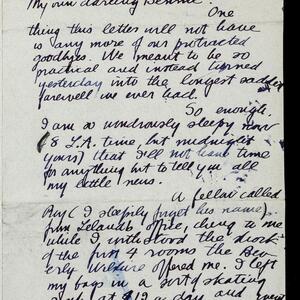 My own darling Bennie.
One
thing this letter will not have
is any more of our protracted
goodbyes. We meant to be so
practical and instead turned
yesterday into the longest saddest
farewell we ever had.
So enough.
I am so wondrously sleepy now
(8 L.A. time, but midnight
yours) that I'll not have time
for anything but to tell you all
my little news.
A fellow called
Roy (I sleepily forget his name)
from Leland's office, clung to me
while I withstood the shock
of the first 4 rooms the Bev-
erly Wilshire offered me. I left
my bags in a sort of skating
at $12 a day and